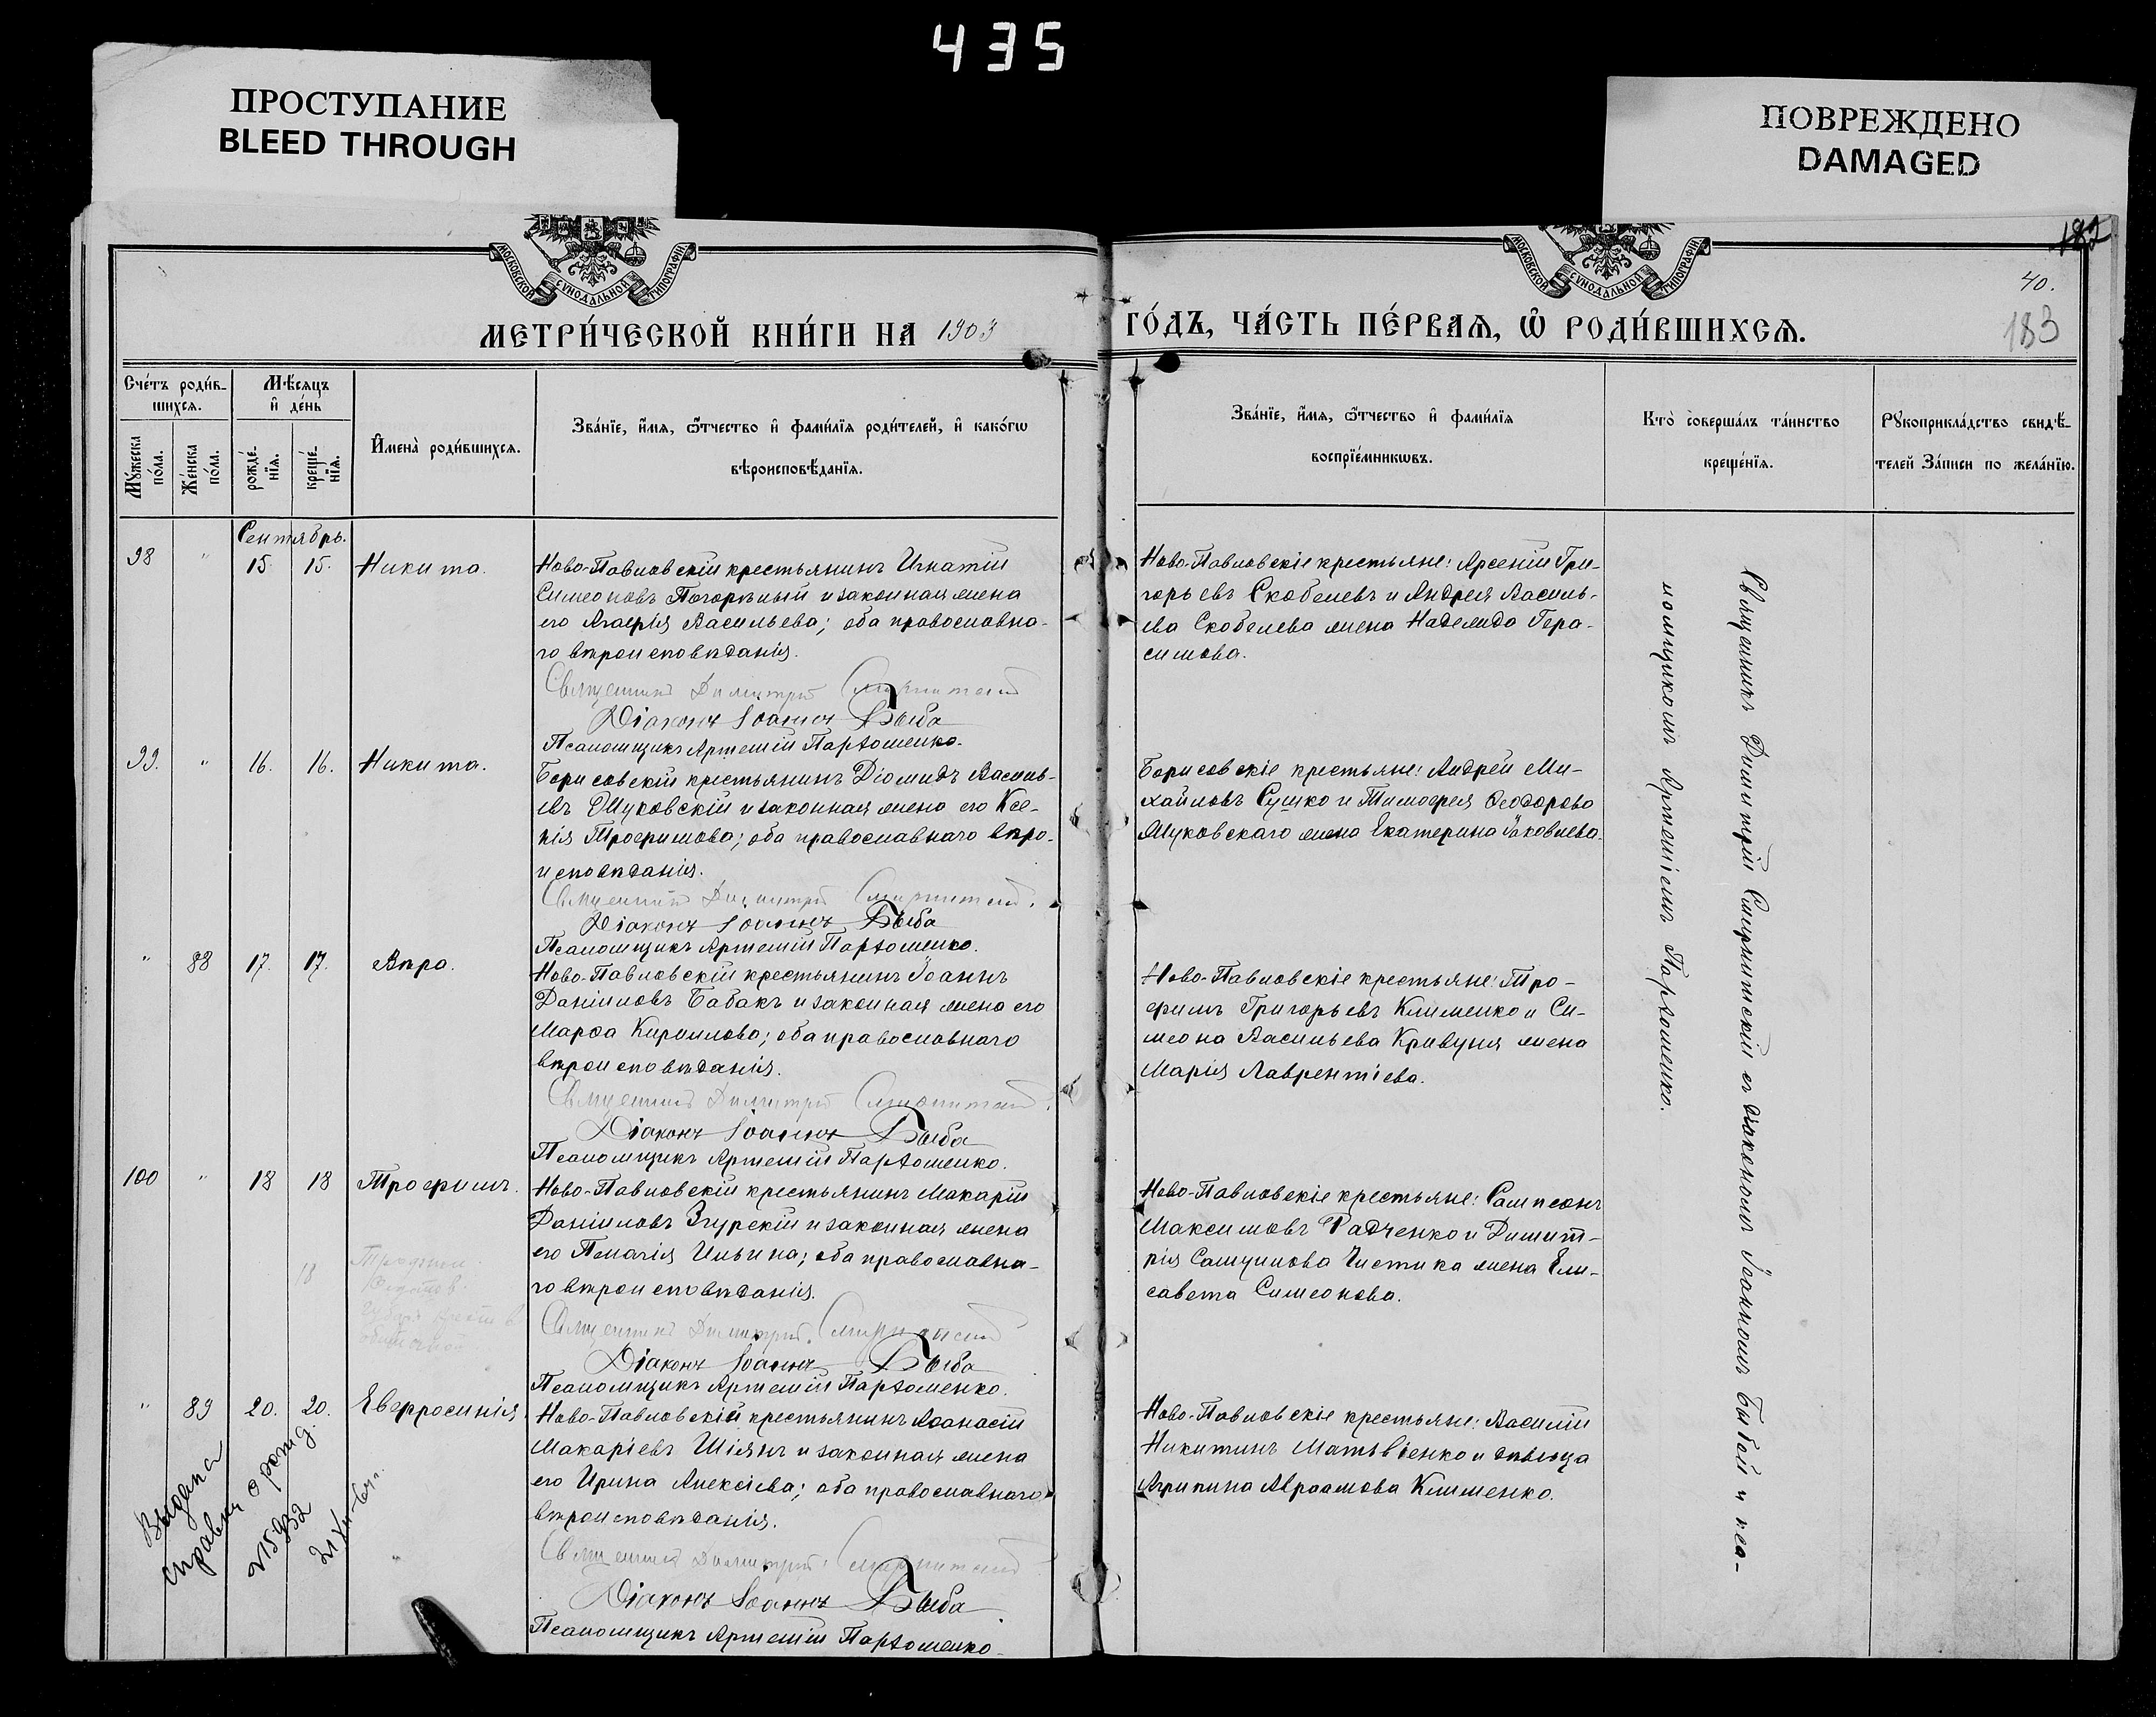 435
ПРОСТУПАНИЕ
BLEED THROUGH
ПОВРЕЖДЕНО
DAMAGED
МОСКОВСКОЙ СУНОДАЛЬНОЙ ТИПОГРАФІИ
МОСКОВСКОЙ СУНОДАЛЬНОЙ ТИПОГРАФІИ
182
40.
183
МЕТРИ́ЧЕСКОЙ КНИ́ГИ НА 1903
ГО́ДЪ, ЧА́СТЬ ПЕ́РВАѦ, Ѿ РОДИ́ВШИХСѦ.
Сче́тъ роди́в-
шихсѧ.
Мѣ́сѧцъ
и҆ де́нь
Мꙋ́жеска
по́ла.
Же́нска
по́ла.
рожде́-
нїѧ.
креще́-
нїѧ.
И҆мена̀ роди́вшихсѧ.
Зва́нїе, и҆́мѧ, ѻ҆́тчество и҆ фами́лїѧ роди́телей, и҆ како́гѡ
вѣроисповѣ́данїѧ.
Зва́нїе, и҆́мѧ, ѻ҆́тчество и҆ фами́лїѧ
воспрїе́мникѡвъ.
Кто̀ соверша́лъ та́инство
креще́нїѧ.
Рꙋкоприкла́дство свидѣ́-
телей За́писи по жела́нїю.
Сентябрь.
98 " 15. 15. Никита.
Ново-Павловскій крестьянинъ Игнатій
Симеоновъ Погорѣлый и законная жена
его Агафія Васильева; оба православна-
го вѣроисповѣданія.
Священникъ Димитрій
Діаконъ Іоаннъ Быба
Псаломщикъ Артемій Пархоменко.
Ново-Павловскіе крестьяне: Арсеній Гри-
горьевъ Скобелевъ и Андрея Василь-
ева Скобелева жена Надежда Гера-
симова.
99. " 16. 16. Никита.
Борисовскій крестьянинъ Діомидъ Василь-
евъ Жуковскій и законная жена его Ксе-
нія Трофимова; оба православнаго вѣро-
исповѣданія.
Священникъ Димитрій
Діаконъ Іоаннъ Быба
Псаломщикъ Артемій Пархоменко.
Борисовскіе крестьяне: Андрей Ми-
хайловъ Сушко и Тимофея Ѳеодорова
Жуковскаго жена Екатерина Іаковлева.
" 88 17. 17. Вѣра.
Ново-Павловскій крестьянинъ Іоаннъ
Даніиловъ Бабакъ и законная жена его
Марѳа Кириллова; оба православнаго
вѣроисповѣданія.
Священникъ Димитрій
Діаконъ Іоаннъ Быба
Псаломщикъ Артемій Пархоменко.
Ново-Павловскіе крестьяне: Тро-
фимъ Григорьевъ Клименко и Си-
меона Васильева Кривуня жена
Марія Лаврентіева.
100 " 18 18 Трофимъ.
Ново-Павловскій крестьянинъ Макарій
Даніиловъ Згурскій и законная жена
его Пелагія Ильина; оба православна-
го вѣроисповѣданія.
Священникъ Димитрій
Діаконъ Іоаннъ Быба
Псаломщикъ Артемій Пархоменко.
Ново-Павловскіе крестьяне: Сампсонъ
Максимовъ Радченко и Димит-
рія Самуилова Чистика жена Ели-
савета Симеонова.
18
" 89 20. 20. Евфросинія
Ново-Павловскій крестьянинъ Аѳанасій
Макаріевъ Шіянъ и законная жена
его Ирина Алексіева; оба православнаго
вѣроисповѣданія.
Священникъ Димитрій
Діаконъ Іоаннъ Быба
Псаломщикъ Артемій Пархоменко
Ново-Павловскіе крестьяне: Василій
Никитинъ Матвіенко и дѣвица
Агрипина Авраамова Клименко.
Выдана
справка о рожд
Священникъ Димитрій Смирнитскій съ діакономъ Іоанномъ Быбой и пса-
ломщикомъ Артеміемъ Пархоменко.